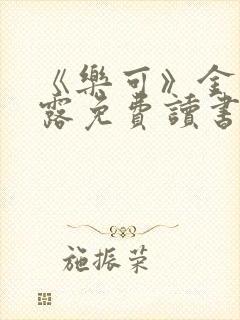 《樂可》金
露免費讀書
施振荣